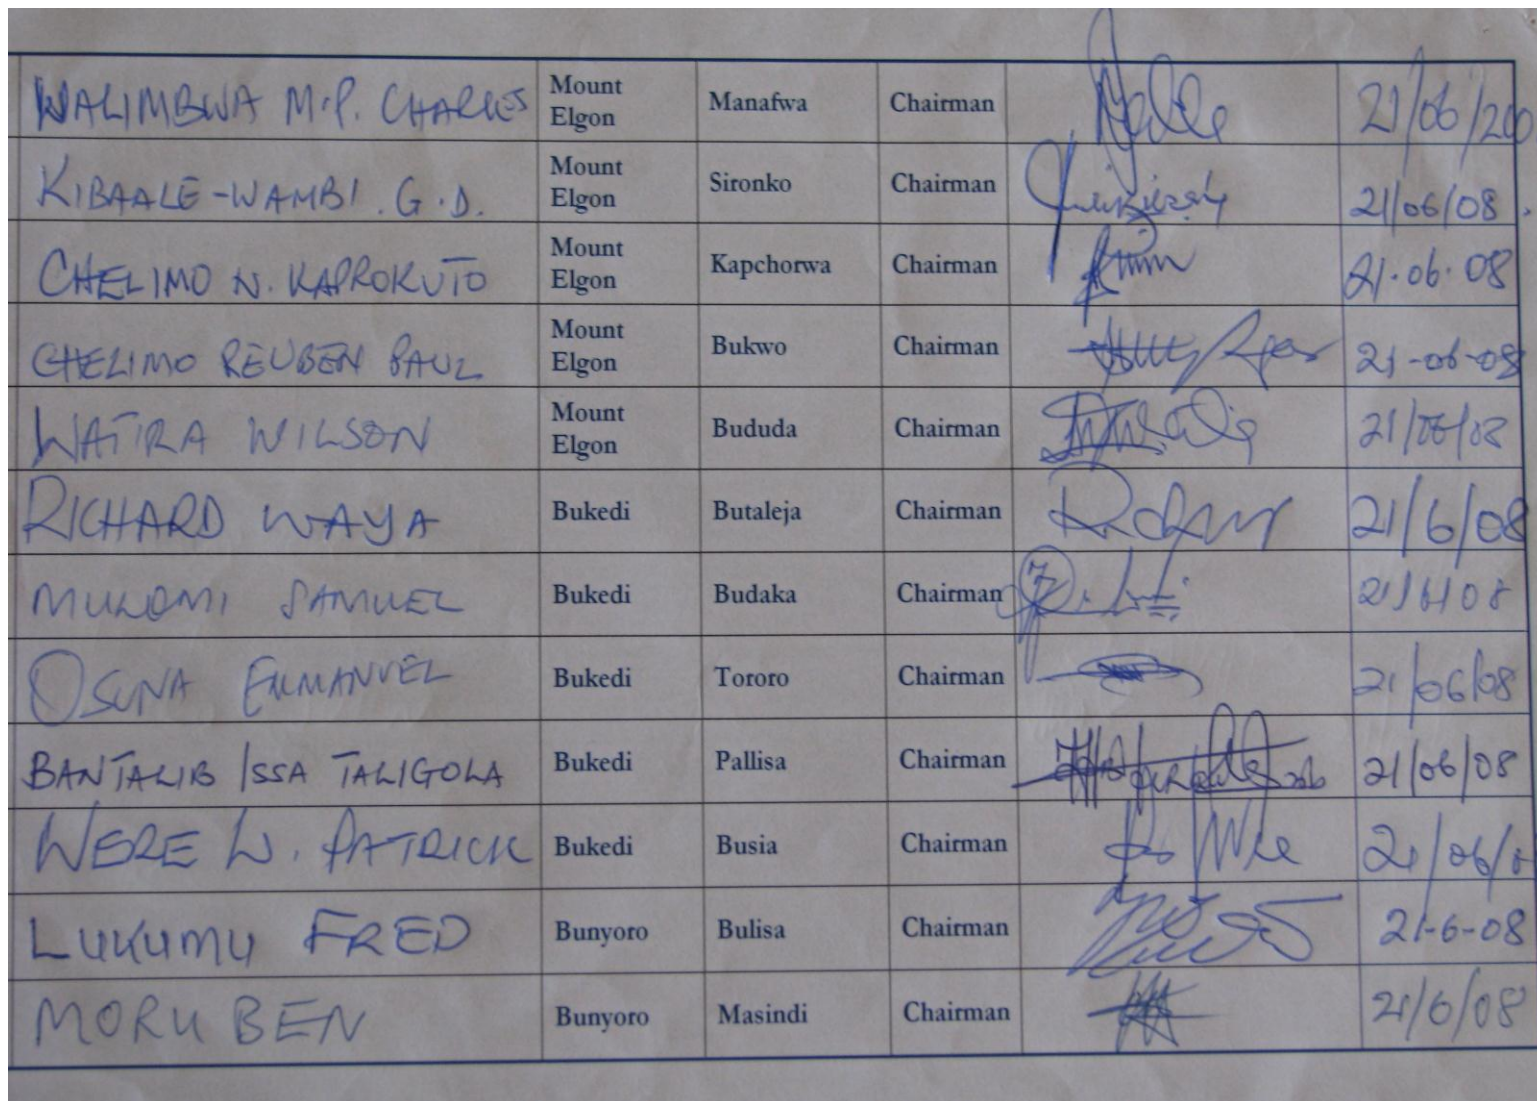 WALIMBWA M.P. CHARLES Mount Elgon Manafwa Chairman 21/06/200
KIBAALE-WAMBI. G.D. Mount Elgon Sironko Chairman 21/06/08
CHELIMO N. KAPROKUTO Mount Elgon Kapchorwa Chairman 21.06.08
CHELIMO REUBEN PAUL Mount Elgon Bukwo Chairman 21-06-08
WATIRA WILSON Mount Elgon Bududa Chairman 21/06/08
RICHARD WAYA Bukedi Butaleja Chairman 21/6/08
MULOMI SAMUEL Bukedi Budaka Chairman 21/6/08
OSUNA EMMANUEL Bukedi Tororo Chairman 21/06/08
BANTALIB ISSA TALIGOLA Bukedi Pallisa Chairman 21/06/08
WERE W. PATRICK Bukedi Busia Chairman 21/06/0
LUKUMU FRED Bunyoro Bulisa Chairman 21-6-08
MORU BEN Bunyoro Masindi Chairman 21/6/08